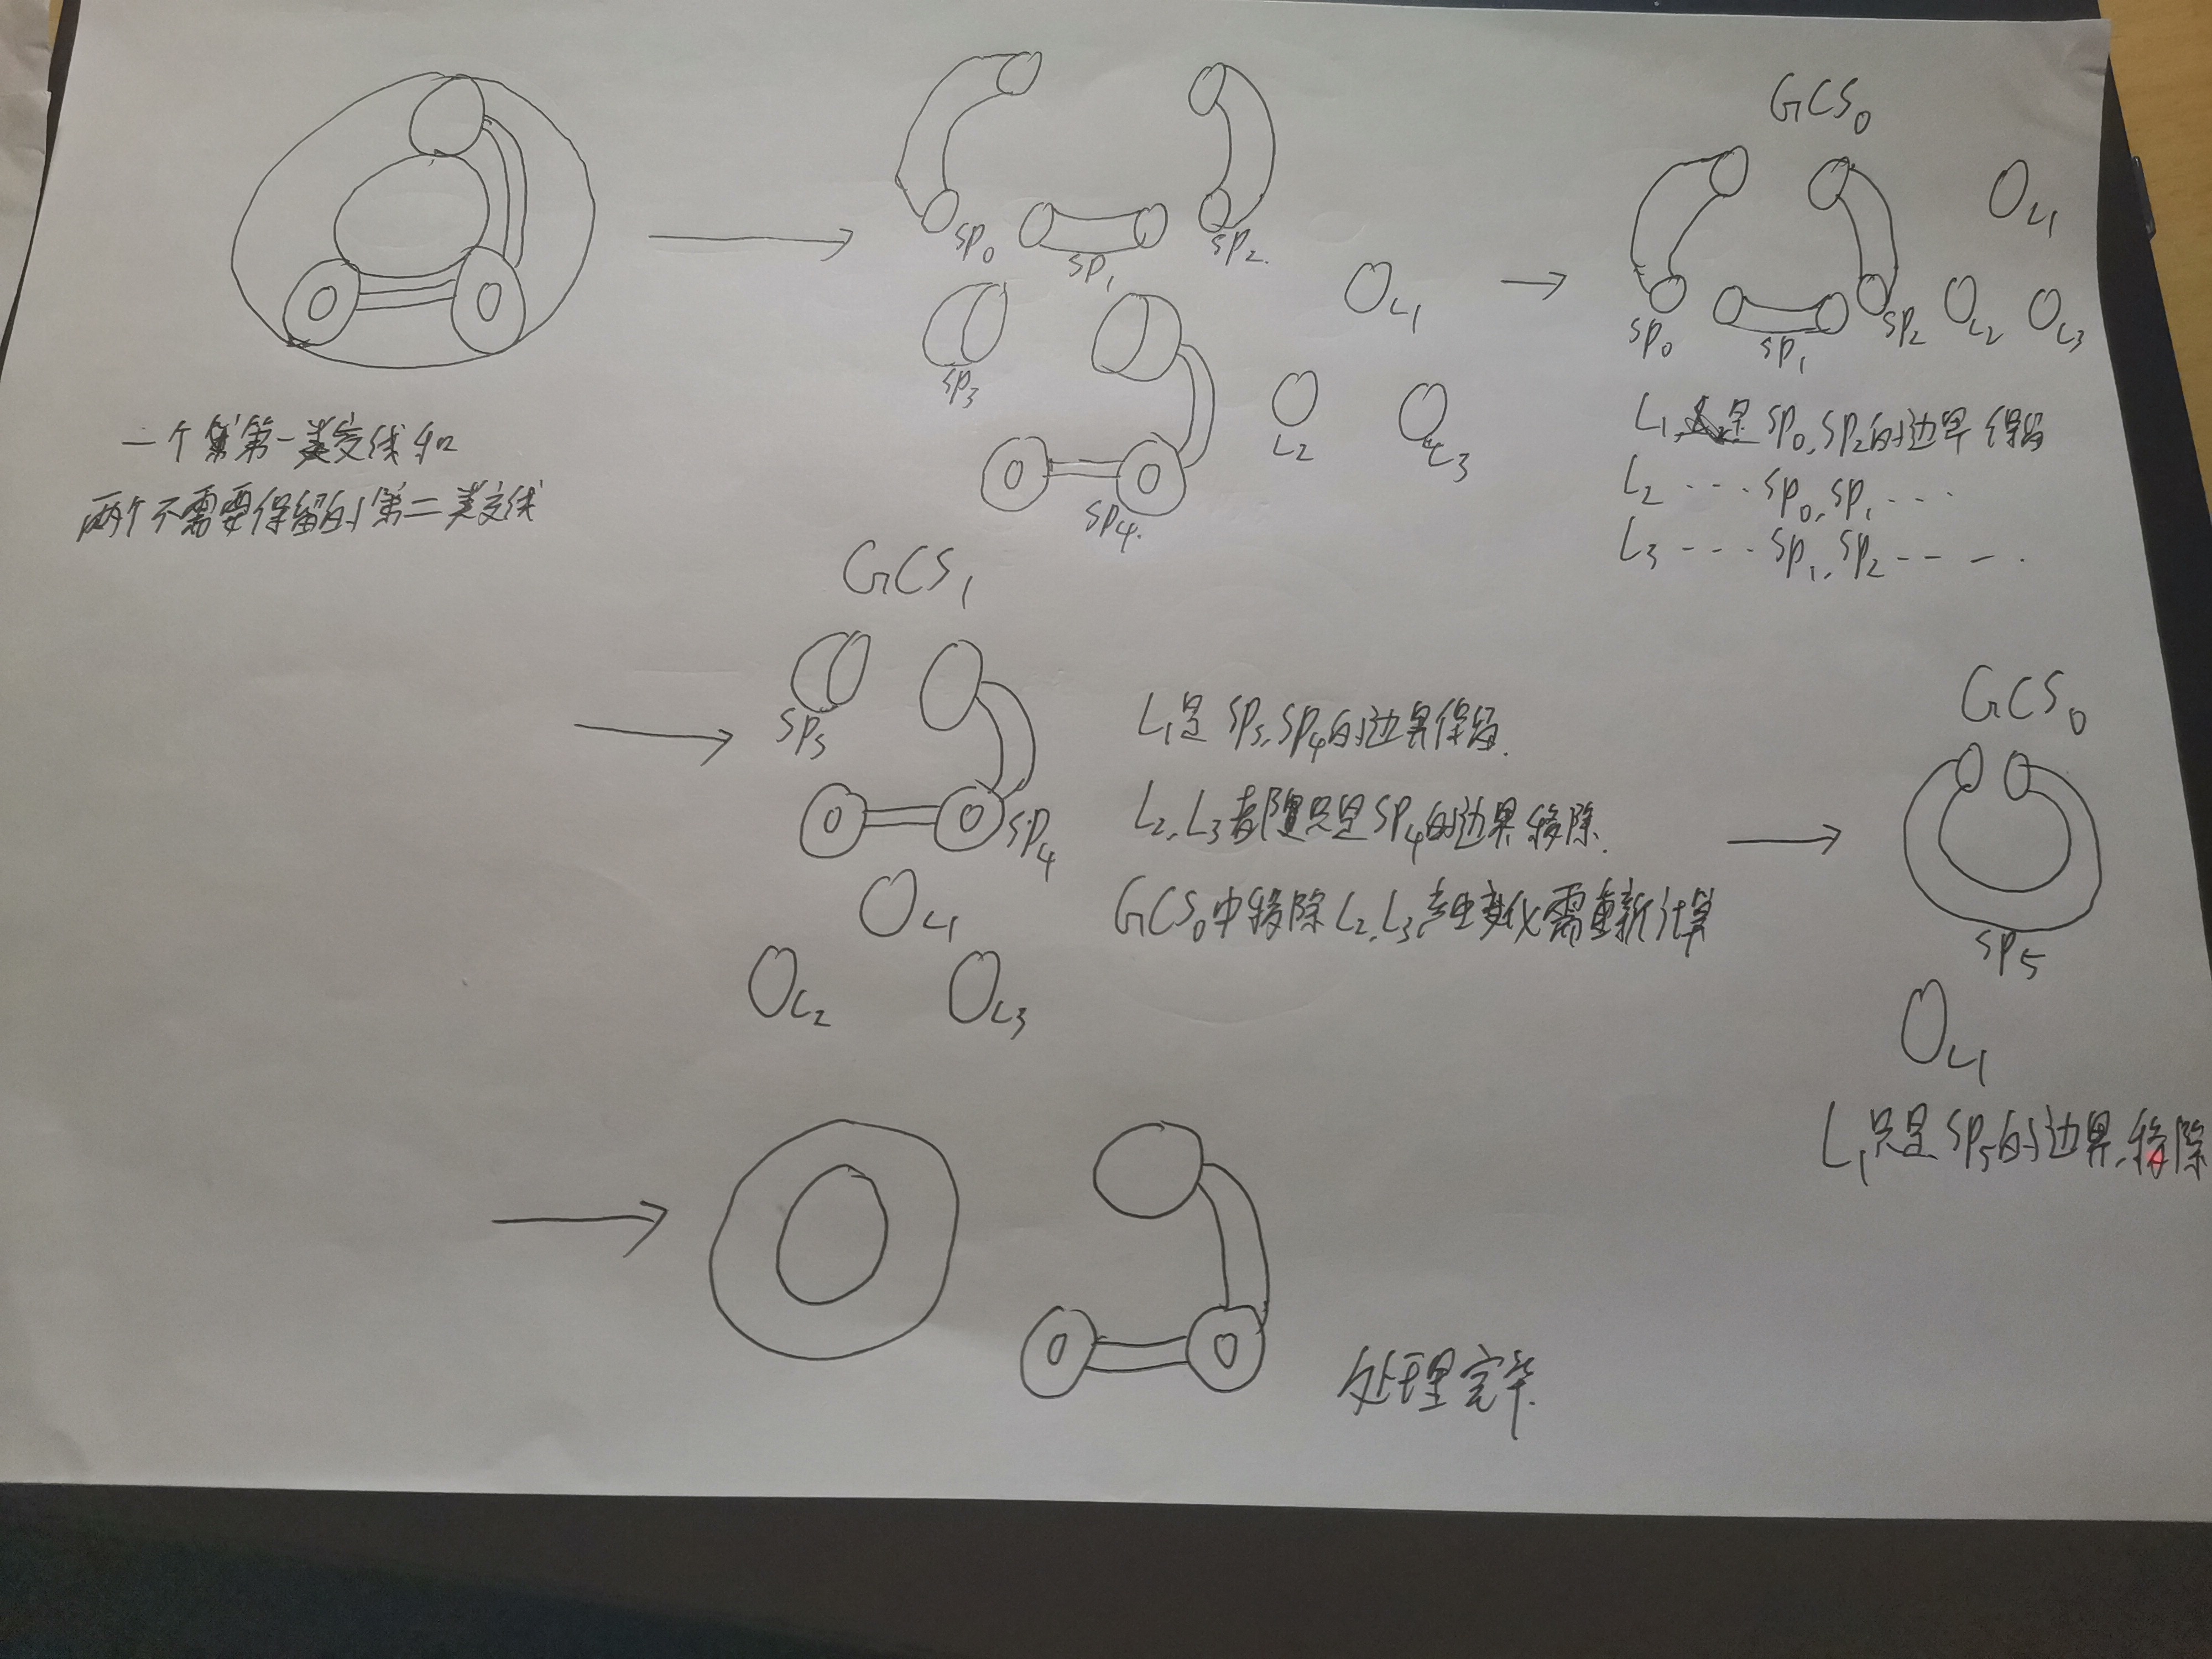 一个第一类交线和
两个不需要保留的第二类交线
SP0
SP1
SP2.
SP3
SP4.
L1
L2
L3
GCS0
L1
SP0
SP1
SP2
L2
L3
L1是SP0,SP2的边界保留
L2 ... SP0,SP1 ...
L3 ... SP1,SP2 ....
GCS1
SP3
SP4
L1
L2
L3
L1是SP3,SP4的边界保留.
L2,L3都只是SP4的边界移除.
GCS0中移除L2,L3产生变化需重新计算
GCS0
SP5
L1
L1只是SP5的边界,移除
处理完毕.